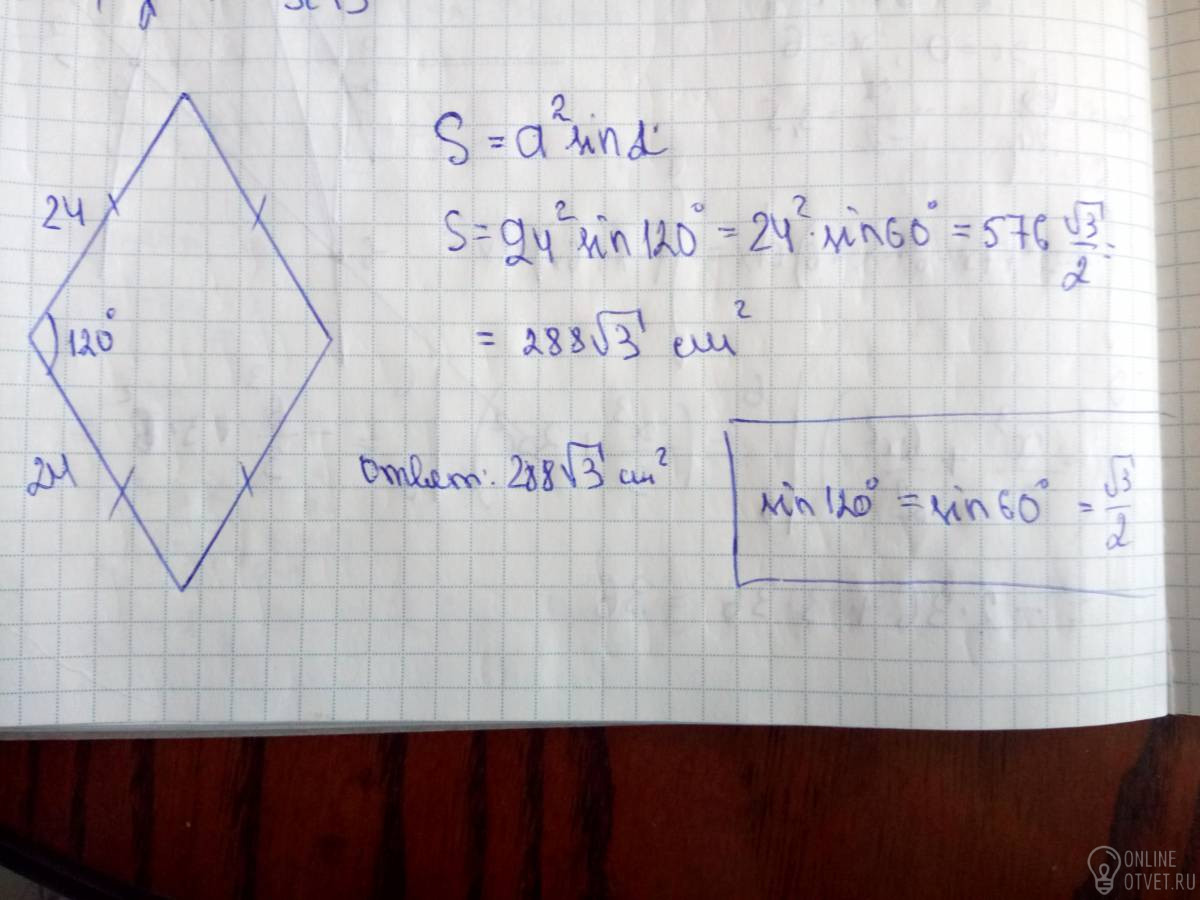 24
120°
24
S = a² sin α
S = 24² sin 120° = 24² · sin 60° = 576 √3/2 =
= 288√3 см²
Ответ: 288√3 см²
sin 120° = sin 60° = √3/2
ONLINE
OTVET.RU